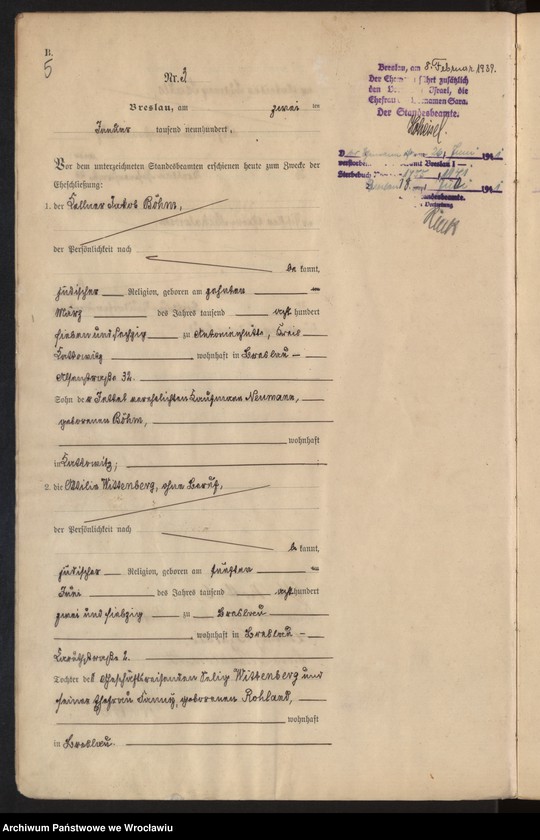 B.
5
Nr. 2
Breslau, am zwei ten
Januar tausend neunhundert.
Vor dem unterzeichneten Standesbeamten erschienen heute zum Zwecke der
Eheschließung:
1. der Kellner Jakob Böhm,
der Persönlichkeit nach
be kannt,
jüdischer Religion, geboren am zehnten
März des Jahres tausend acht hundert
sieben und sechzig zu Antonienhütte, Kreis
Kattowitz, wohnhaft in Breslau
Alsenstraße 32.
Sohn der Jettel verehelichten Kaufmann Neumann,
geborenen Böhm,
wohnhaft
in Kattowitz;
2. die Ottilie Wittenberg, ohne Beruf,
der Persönlichkeit nach
be kannt,
jüdischer Religion, geboren am fünften
Juni des Jahres tausend acht hundert
zwei und siebzig zu Breslau
, wohnhaft in Breslau
straße 2.
Tochter des Geschäftsreisenden Selig Wittenberg und
seiner Ehefrau Fanny, geborenen Rohland,
wohnhaft
in Breslau.
Breslau, am 8. Februar 1939.
Der Ehemann führt zusätzlich
den Vornamen Israel, die
Ehefrau den Vornamen Sara.
Der Standesbeamte.
Juni 194
verstorben Breslau I
Sterbebuch
194
Standesbeamte.
Archiwum Państwowe we Wrocławiu